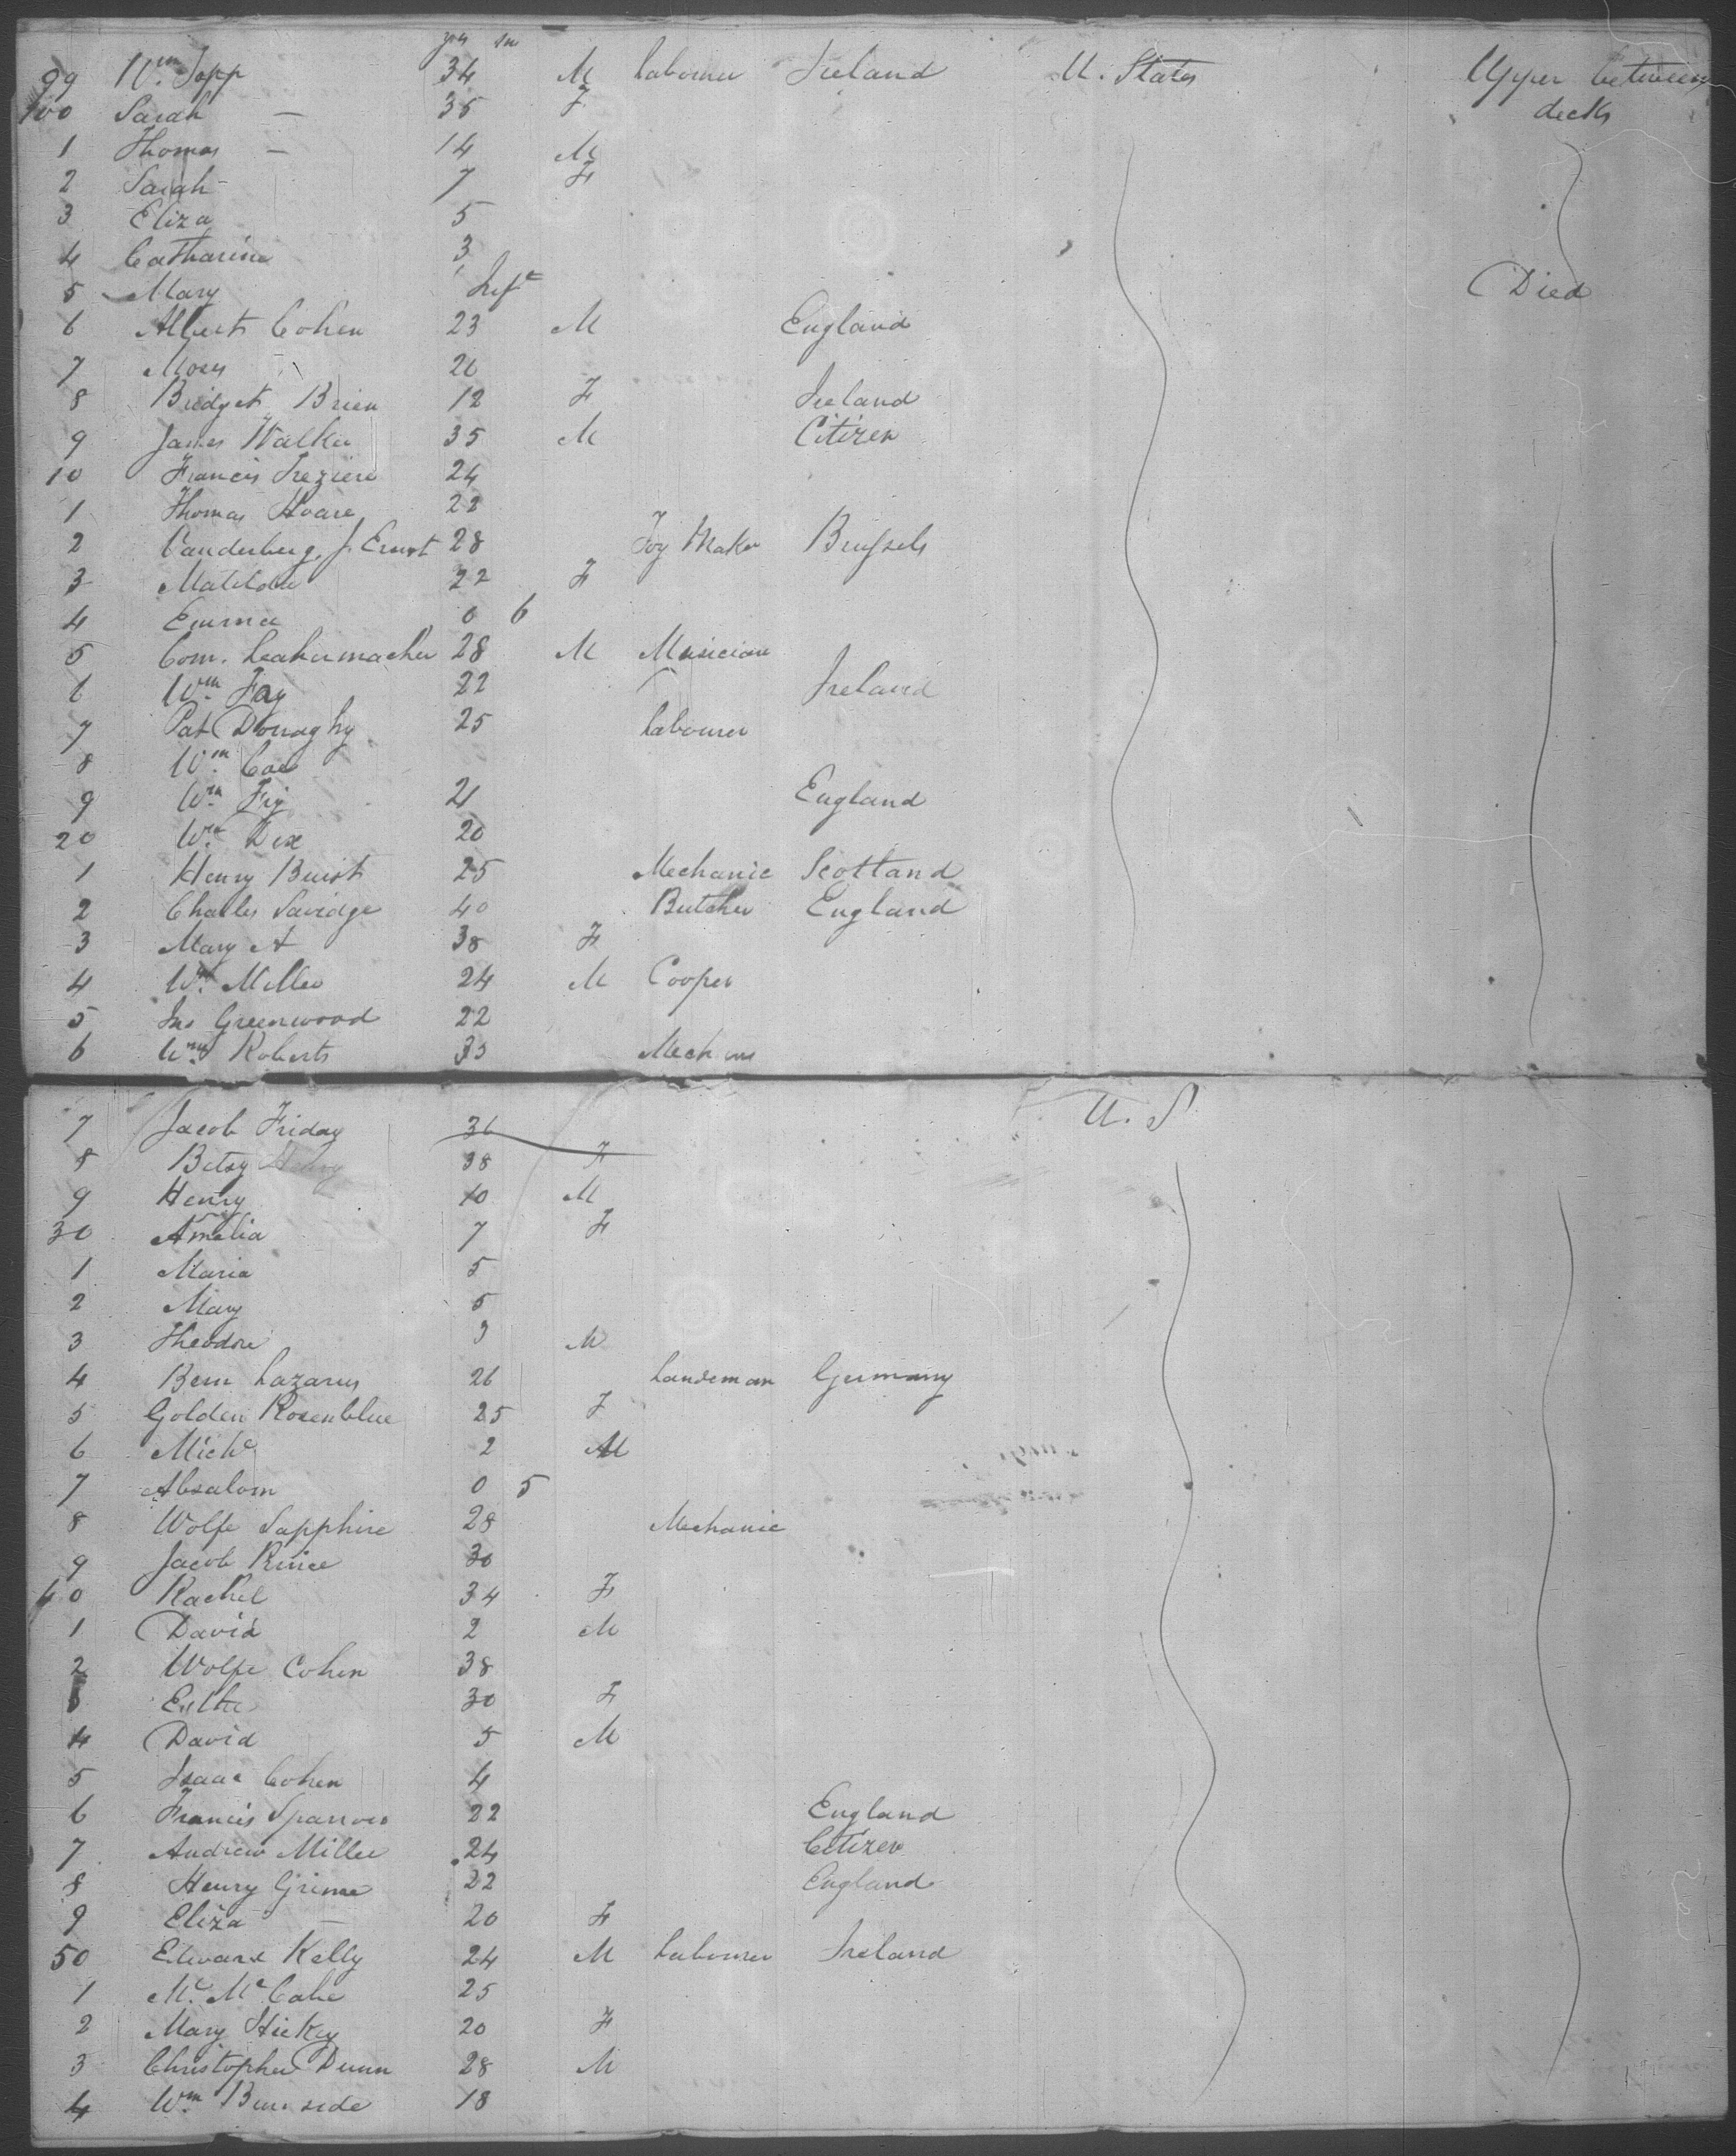 yrs m
99 Wm Topp 34 M Labourer Ireland U. States Upper between
100 Sarah — 35 F decks
1 Thomas — 14 M
2 Sarah - 7 F
3 Eliza 5
4 Catharine 3
5 Mary Inft Died
6 Albert Cohen 23 M England
7 Moses 20
8 Bridget Brien 12 F Ireland
9 James Walker 35 M Citizen
10 Francis 24
1 Thomas Hoare 22
2 Vanderberg, J. Ernst 28 Toy Maker Brussels
3 Matilda 22 F
4 Emma 0 6
5 Com. 28 M Musician
6 Wm Fay 22 Ireland
7 Pat Donaghy 25 Labourer
8 Wm Coe
9 Wm Fry 21 England
20 Wm Dix 20
1 Henry Buist 25 Mechanic Scotland
2 Charles Savidge 40 Butcher England
3 Mary A 38 F
4 Wm Miller 24 M Cooper
5 Jno Greenwood 22
6 Wm Roberts 35
7 Jacob Friday 36 U. S
8 Betsy 38 F
9 Henry 10 M
30 Amelia 7 F
1 Maria 5
2 Mary 5
3 Theodore 3 M
4 Bern Lazarus 26 Landsman Germany
5 Golden Rosenblue 25 F
6 Michl 2 M
7 Absalom 0 5
8 Wolfe Sapphire 28 Mechanic
9 Jacob 30
40 Rachel 34 F
1 David 2 M
2 Wolfe Cohen 38
3 Esther 30 F
4 David 5 M
5 Isaac Cohen 4
6 Francis Sparrow 22 England
7 Andrew Miller 24 Citizen
8 Henry Grime 22 England
9 Eliza — 20 F
50 Edward Kelly 24 M Labourer Ireland
1 Mc. McCabe 25
2 Mary Hickey 20 F
3 Christopher Dunn 28 M
4 Wm Burnside 18